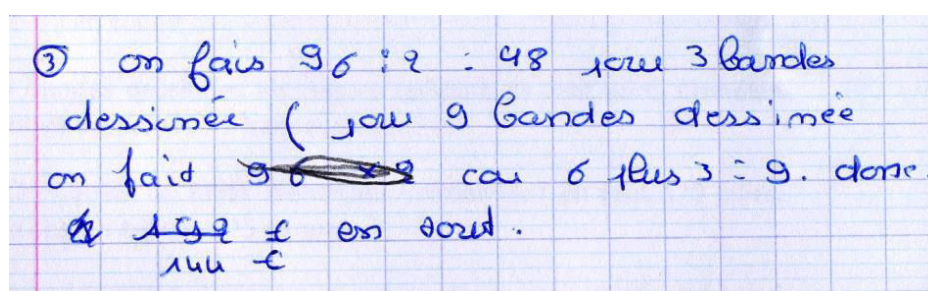 ③ on fais 96 : 2 = 48 pour 3 bandes
dessinée ( pour 9 bandes dessinée
on fait 96 x 2 car 6 plus 3 = 9. donc
192 € en tout.
144 €